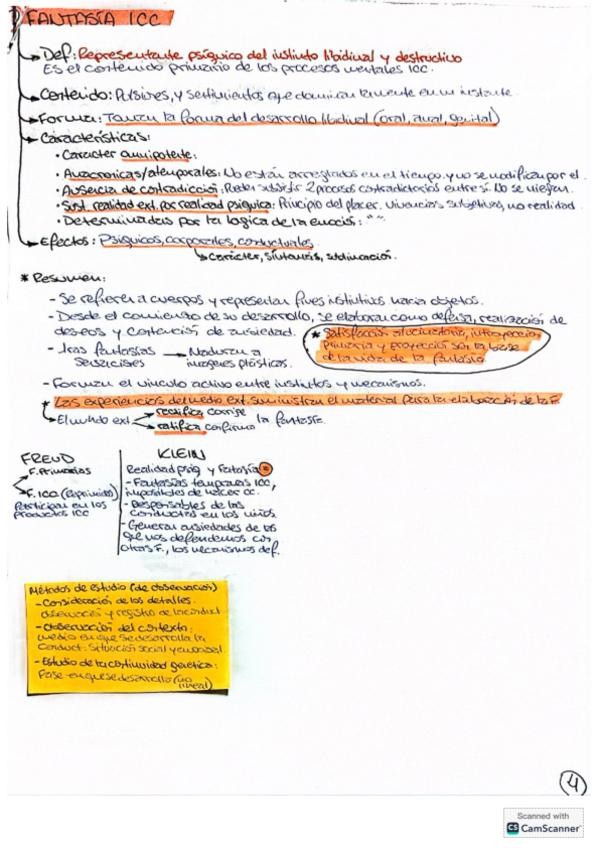 FANTASÍA ICC
Def: Representante psíquico del instinto libidinal y destructivo
Es el contenido primario de los procesos mentales ICC.
Contenido: Pulsiones, y sentimientos que dominan la mente en un instante.
Forma: Toman la forma del desarrollo libidinal (oral, anal, genital)
Características:
• Caracter omnipotente:
• Anacronicas/atemporales: No están arreglados en el tiempo, y no se modifican por el.
• Ausencia de contradicción: Pueden subsistir 2 procesos contradictorios entre sí. No se niegan.
• Sust. realidad ext. por realidad psiquica: Principio del placer. vivencias subjetivas, no realidad.
• Determinadas por la logica de la emoción: " "
Efectos: Psíquicos, corporales, conductuales.
Carácter, síntomas, sublimación.
* Resumen:
- Se refieren a cuerpos y representan fines instintivos hacia objetos.
- Desde el comienzo de su desarrollo, se elaboran como defensa, realización de
deseos y contención de ansiedad.
* Satisfacción alucinatoria, introyección
primaria y proyección son la base
de la vida de la fantasía.
- 1ras fantasías → Maduran a
sensaciones imagenes plásticas.
- Forman el vínculo activo entre instintos y mecanismos.
* Las experiencias del medio ext. suministran el material para la elaboración de la F.
- El mundo ext. rectifica corrige
ratifica confirma la fantasía.
FREUD
F. Primarias
F. ICC (Reprimidos)
Participan en los
productos ICC
KLEIN
Realidad psiq y Fantasía *
- Fantasías tempranas ICC,
imposibles de hacer cc.
- Responsables de las
conductas en los niños
- Generan ansiedades de las
que nos defendemos con
otras F., los mecanismos def.
Métodos de estudio (de observación)
- Consideración de los detalles.
observación y registro de la conduct
- Observación del contexto:
medio en que se desarrolla la
conduct. Situación social y emocional
- Estudio de la continuidad genética:
Fase en que se desarrolla (no
lineal)
4
Scanned with
CS CamScanner